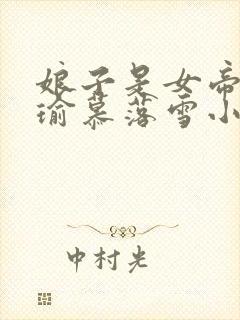 娘子是女帝
瑜慕落雪小
中村光